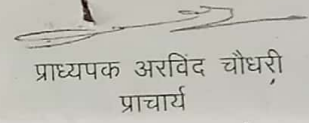 प्राध्यपक अरविंद चौधरी
प्राचार्य